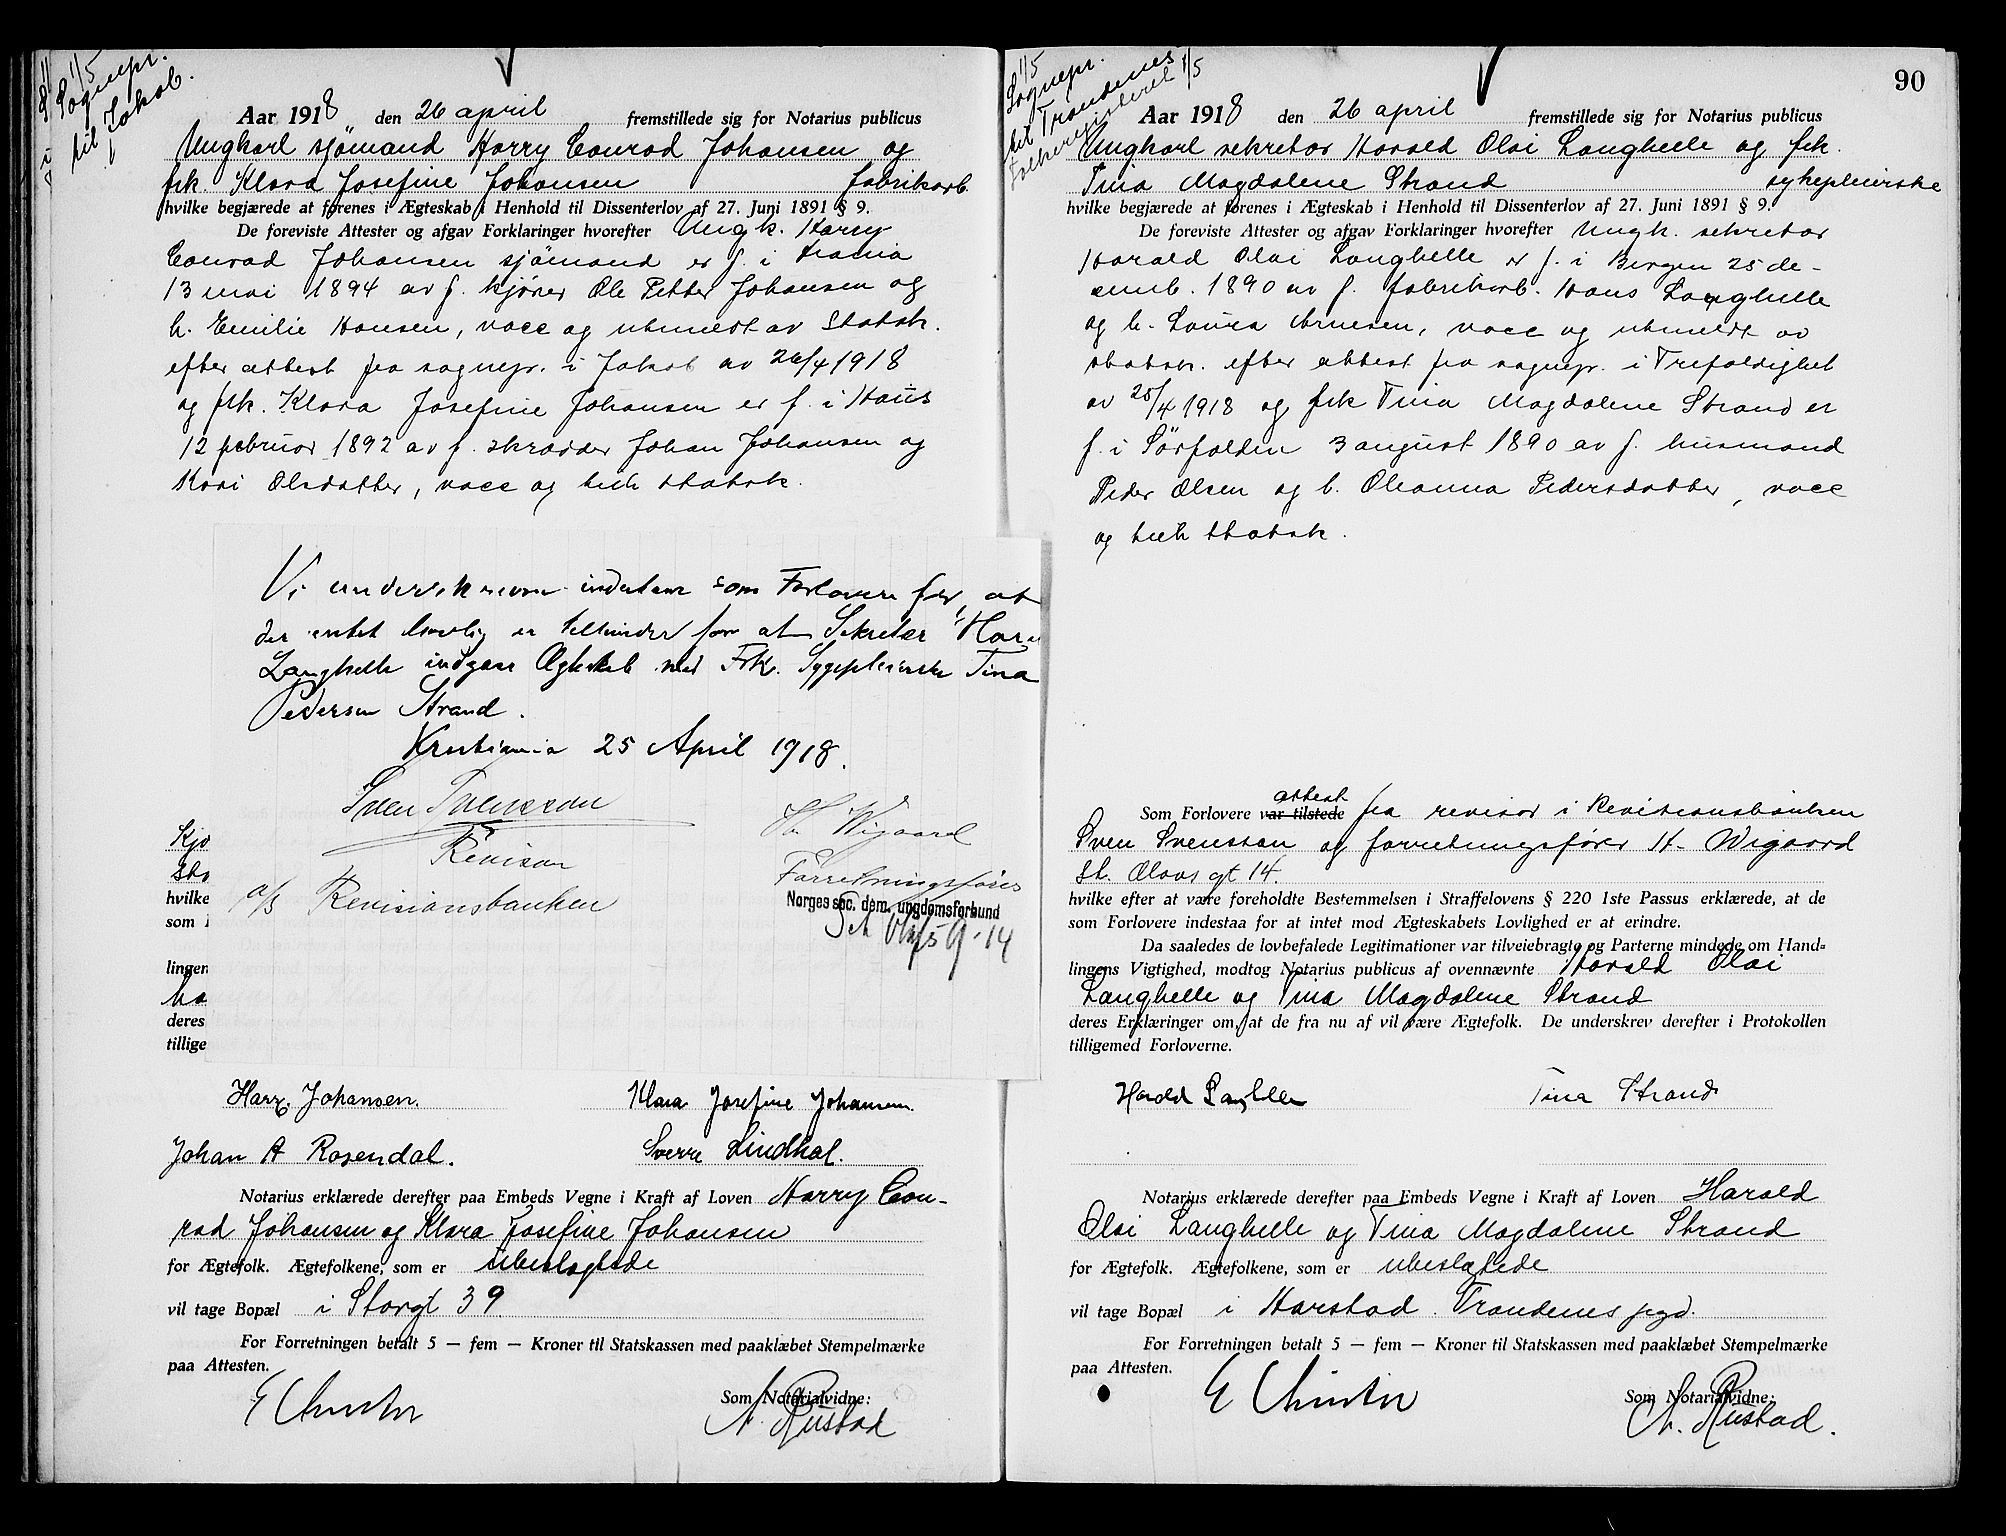 1/5
Sognepr.
til Jakob.
Aar 1918 den 26 april fremstillede sig for Notarius publicus
Ungkarl sjømand Harry Conrad Johansen og
frk. Klara Josefine Johansen fabrikarb.
hvilke begjærede at forenes i Ægteskab i Henhold til Dissenterlov af 27. Juni 1891 § 9.
De foreviste Attester og afgav Forklaringer hvorefter Ungk. Harry
Conrad Johansen sjømand er f. i
13 mai 1894 av f. kjører Ole Petter Johansen og
h. Emilie Hansen, vacc og utmeldt av Statsk.
efter attest fra sognepr. i Jakob av 26/4 1918
og frk. Klara Josefine Johansen er f. i Haus
12 februar 1892 av f. skrædder Johan Johansen og
Kari Olsdatter, vacc og tilh statsk.
Vi undertskrevne indestaar som Forlovere for, at
der intet lovlig er tilhinder for at Sekretær Har
Langhelle indgaar Ægteskab med Frk. Sygepleierske Tina
Pedersen Strand.
Kristiania 25 April 1918.
Sven Svensson
Revisor
a/s Revisionsbanken
H. Wigaard
Forretningsfører
Norges soc. dem. ungdomsforbund
St. Olafs G. 14
Kjø
Sto
hvilke
som I
lingen
ha
deres
tillige
Harry Johansen. Klara Josefine Johansen.
Johan A Rosendal. Sverre Lindhal.
Notarius erklærede derefter paa Embeds Vegne i Kraft af Loven Harry Con-
rad Johansen og Klara Josefine Johansen
for Ægtefolk. Ægtefolkene, som er ubeslægtede
vil tage Bopæl i Storgt 39
For Forretningen betalt 5 — fem — Kroner til Statskassen med paaklæbet Stempelmærke
paa Attesten.
E Christie
Som Notarialvidne:
A. Rustad
90
1/5
Sognepr.
til Trondenes
Folkeregisteret 1/5
Aar 1918 den 26 april fremstillede sig for Notarius publicus
Ungkarl sekretær Harald Olai Langhelle og frk.
Tina Magdalene Strand sykepleierske
hvilke begjærede at forenes i Ægteskab i Henhold til Dissenterlov af 27. Juni 1891 § 9.
De foreviste Attester og afgav Forklaringer hvorefter Ungk. sekretær
Harald Olai Langhelle er f. i Bergen 25 de-
cemb. 1890 av f. fabrikarb. Hans Langhelle
og h. Laura Arnesen, vacc og utmeldt av
statsk. efter attest fra sognepr. i Trefoldighet
av 25/4 1918 og frk Tina Magdalene Strand er
f. i Sörfolden 3 august 1890 av f. husmand
Peder Olsen og h. Oleanna Pedersdatter, vacc
og tilh statsk.
Som Forlovere var tilstede attest fra revisor i Revisionsbanken
Sven Svensson og forretningsfører H. Wigaard
St. Olavs gt 14.
hvilke efter at være foreholdte Bestemmelsen i Straffelovens § 220 1ste Passus erklærede, at de
som Forlovere indestaa for at intet mod Ægteskabets Lovlighed er at erindre.
Da saaledes de lovbefalede Legitimationer var tilveiebragte og Parterne mindede om Hand-
lingens Vigtighed, modtog Notarius publicus af ovennævnte Harald Olai
Langhelle og Tina Magdalene Strand
deres Erklæringer om, at de fra nu af vil være Ægtefolk. De underskrev derefter i Protokollen
tilligemed Forloverne.
Harald Langhelle Tina Strand
Notarius erklærede derefter paa Embeds Vegne i Kraft af Loven Harald
Olai Langhelle og Tina Magdalene Strand
for Ægtefolk. Ægtefolkene, som er ubeslægtede
vil tage Bopæl i Harstad Trondenes pgd.
For Forretningen betalt 5 — fem — Kroner til Statskassen med paaklæbet Stempelmærke
paa Attesten.
E Christie
Som Notarialvidne:
A. Rustad.